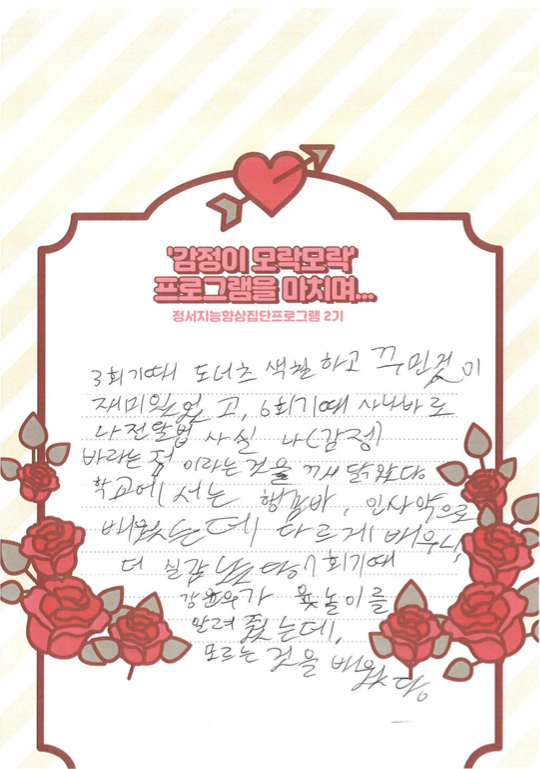 '감정이 모락모락'
프로그램을 마치며...
정서지능향상집단프로그램 2기
3회기때 도너츠 색칠하고 꾸민것이
재미있었고, 6회기때 사나바로
나전달법 사실 나(감정)
바라는점 이라는것을 깨닭았다.
학교에서는 행감바, 인사약으로
배웠는데 다르게 배우니,
더 실감났다. 7회기때
윷놀이를
알려줬는데,
모르는 것을 배웠다.